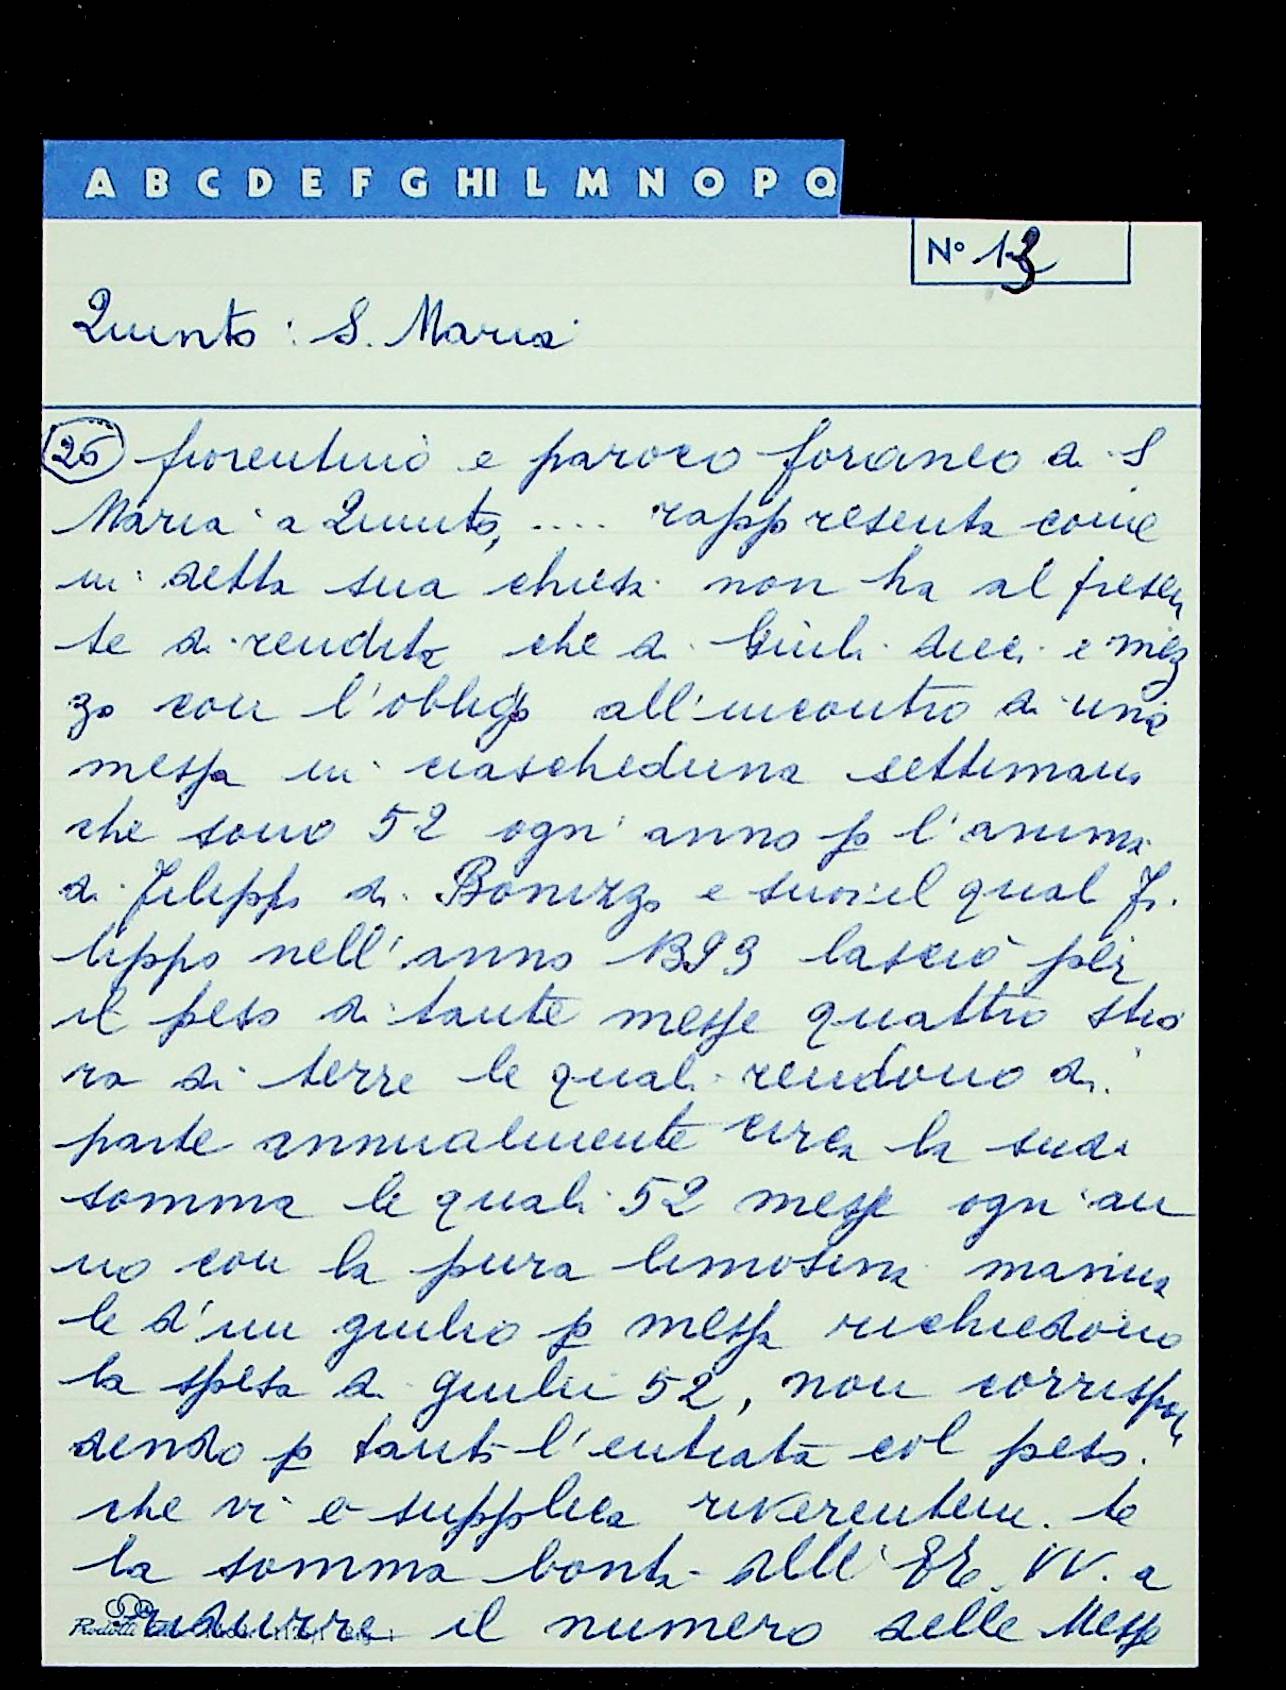 A B C D E F G HI L M N O P Q
N° 13
Quinto : S. Maria
26 fiorentino e paroco foraneo di S
Maria a Quinto, .... rappresenta come
in detta sua chiesa non ha al presen
te di rendita che di Giuli dieci e mez
zo con l'obligo all'incontro di una
messa in ciascheduna settimana
che sono 52 ogn' anno p l'anima
di Filippo di Bonizzo e suoi il qual Fi
lippo nell' anno 1393 lasciò per
il peso di tante messe quattro stio
ra di terre le quali rendono di
parte annualmente circa la suda
somma le quali 52 messe ogn' an
no con la pura limosina manua
le d'un giulio p messa richiedono
la spesa di giulii 52, non corrispon
dendo p tanto l'entrata col peso
che vi è supplica riverentem. te
la somma bontà dell' EE. VV. a
ridurre il numero delle Messe